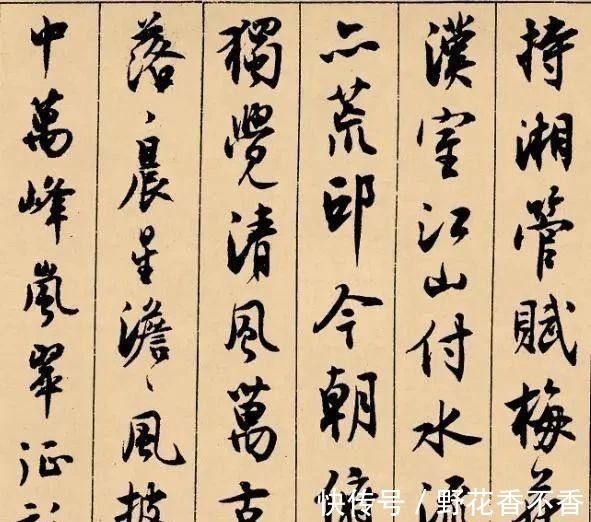 持湘管賦梅花
漢室江山付水流
亦荒邱今朝
獨覺清風萬古
落〻晨星澹〻風披
中萬峰嵐翠征
快传号 / 野花香不香